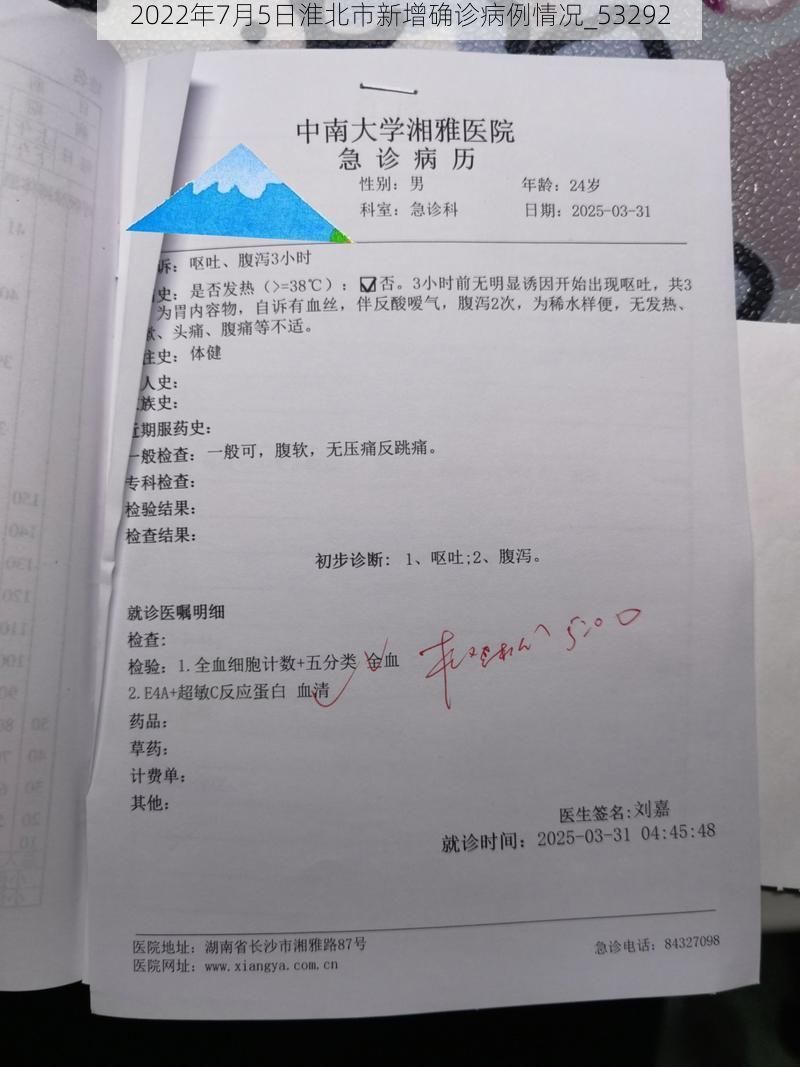 2022年7月5日淮北市新增确诊病例情况_53292
中南大学湘雅医院
急诊病历
性别：男 年龄：24岁
科室：急诊科 日期：2025-03-31
诉：呕吐、腹泻3小时
史：是否发热（>=38℃）：☑否。3小时前无明显诱因开始出现呕吐，共3
为胃内容物，自诉有血丝，伴反酸嗳气，腹泻2次，为稀水样便，无发热、
、头痛、腹痛等不适。
往史：体健
人史：
族史：
近期服药史：
一般检查：一般可，腹软，无压痛反跳痛。
专科检查：
检验结果：
检查结果：
初步诊断：1、呕吐;2、腹泻。
就诊医嘱明细
检查：
检验：1.全血细胞计数+五分类 全血
2.E4A+超敏C反应蛋白 血清
5:00
药品：
草药：
计费单：
其他：
医生签名:刘嘉
就诊时间：2025-03-31 04:45:48
医院地址：湖南省长沙市湘雅路87号 急诊电话：84327098
医院网址：www.xiangya.com.cn